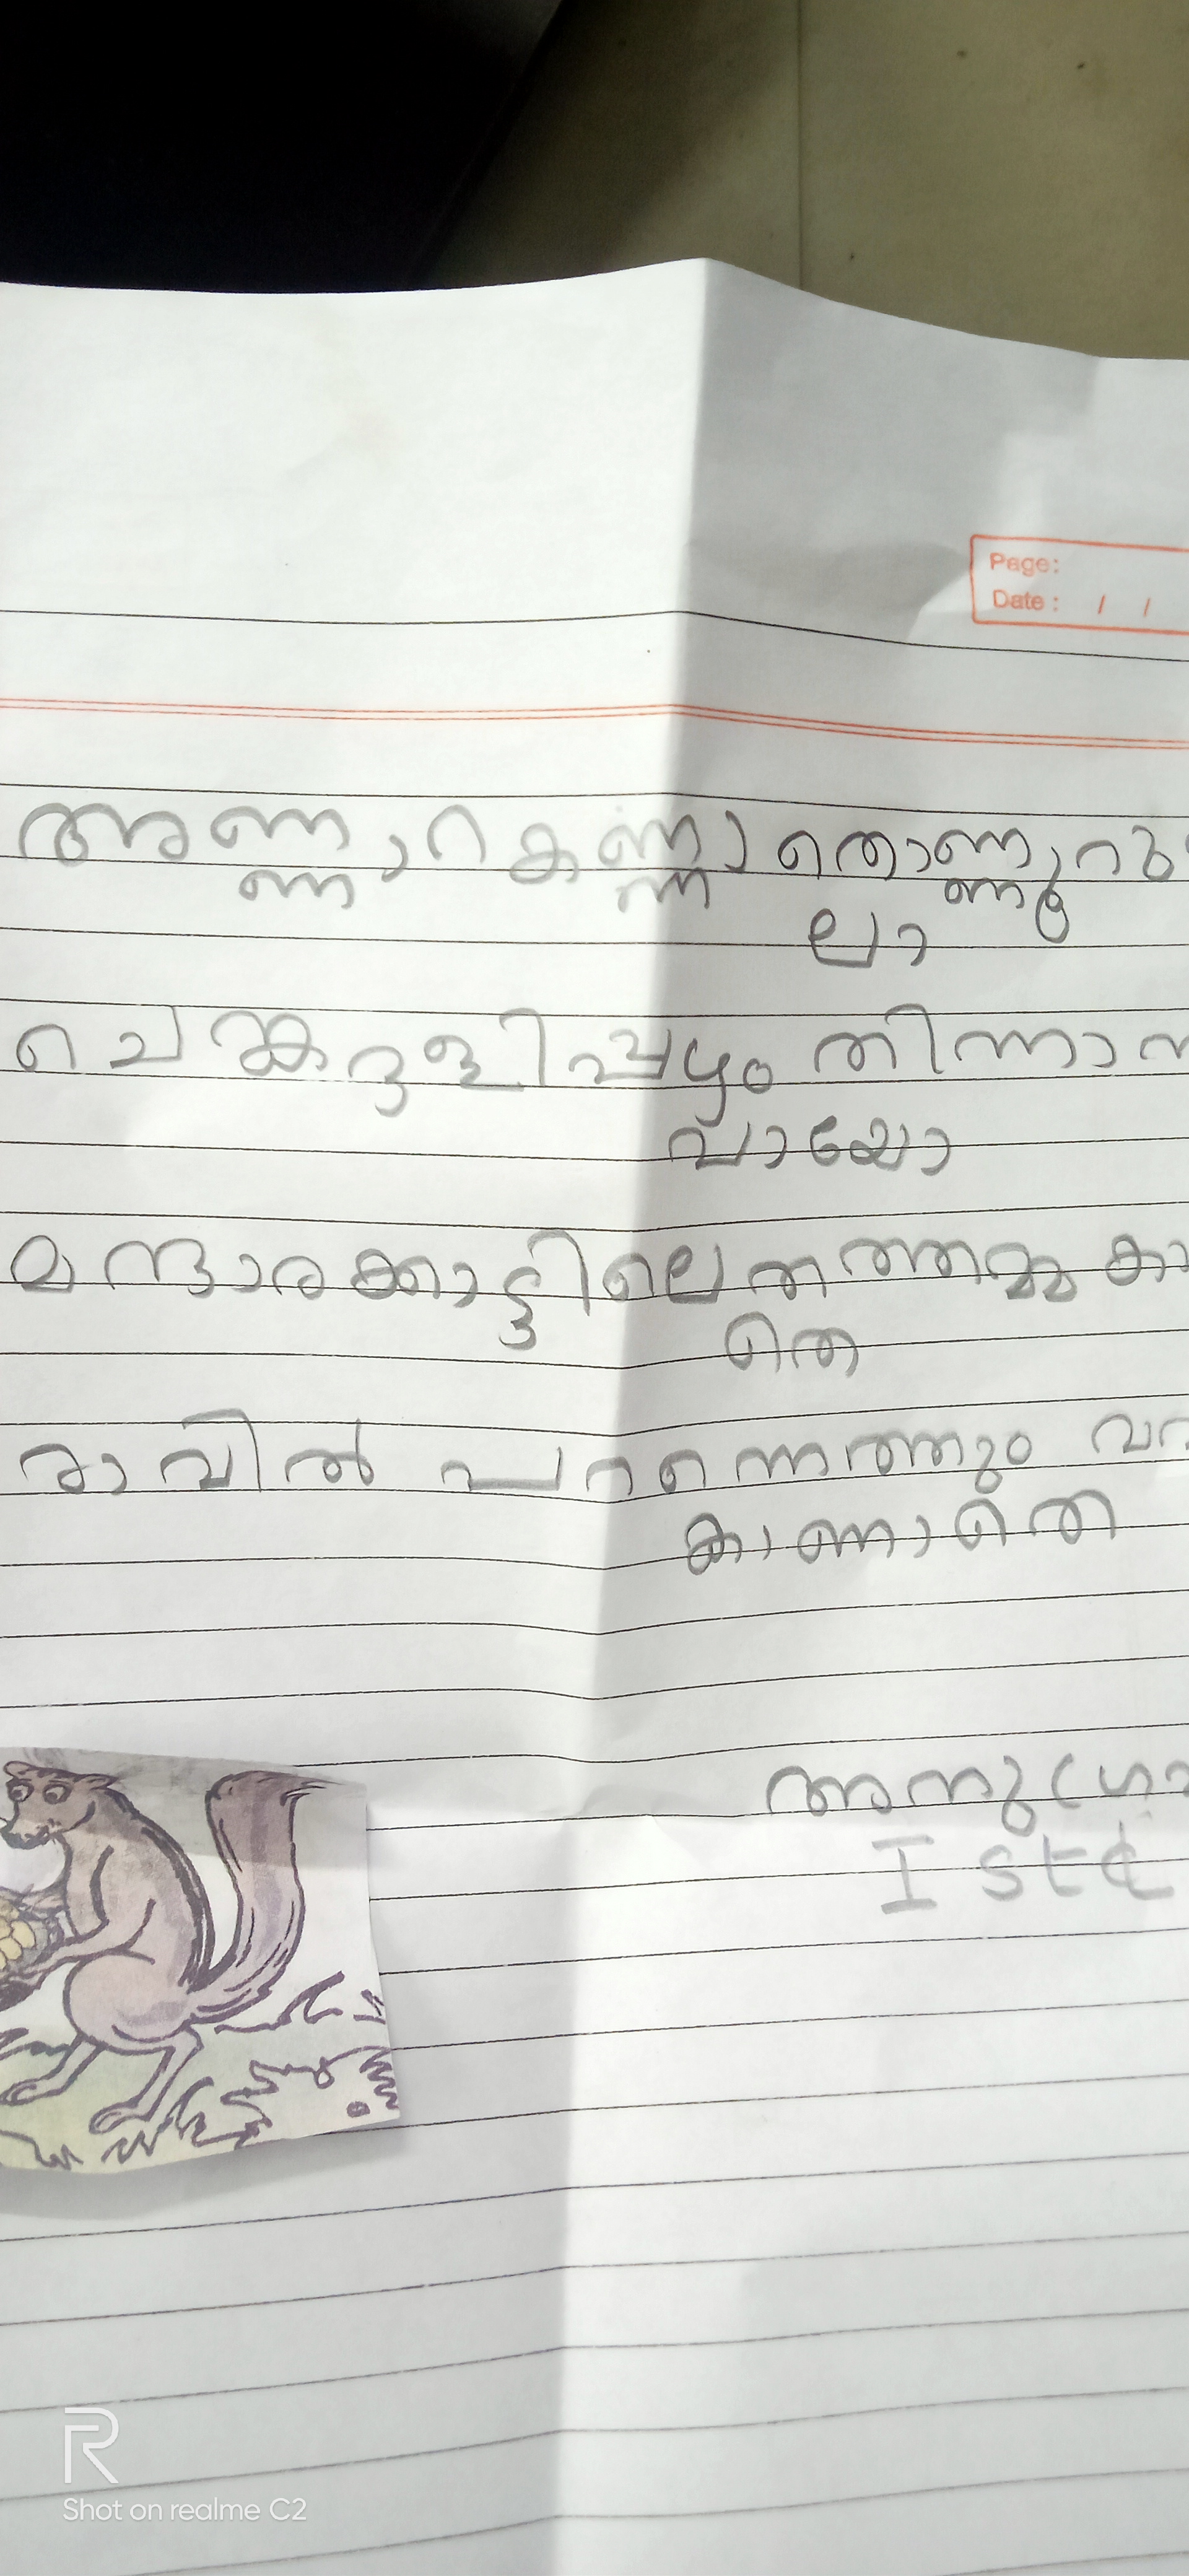 Page:
Date: / /
അണ്ണാറകണ്ണാ തൊണ്ണൂറു
ലാ
ചെങ്കദളിപ്പഴം തിന്നാ
വായോ
മന്ദാരക്കാട്ടിലെ തത്തമ്മ
തെ
രാവിൽ പറന്നെത്തും
കാണാതെ
I std
Shot on realme C2